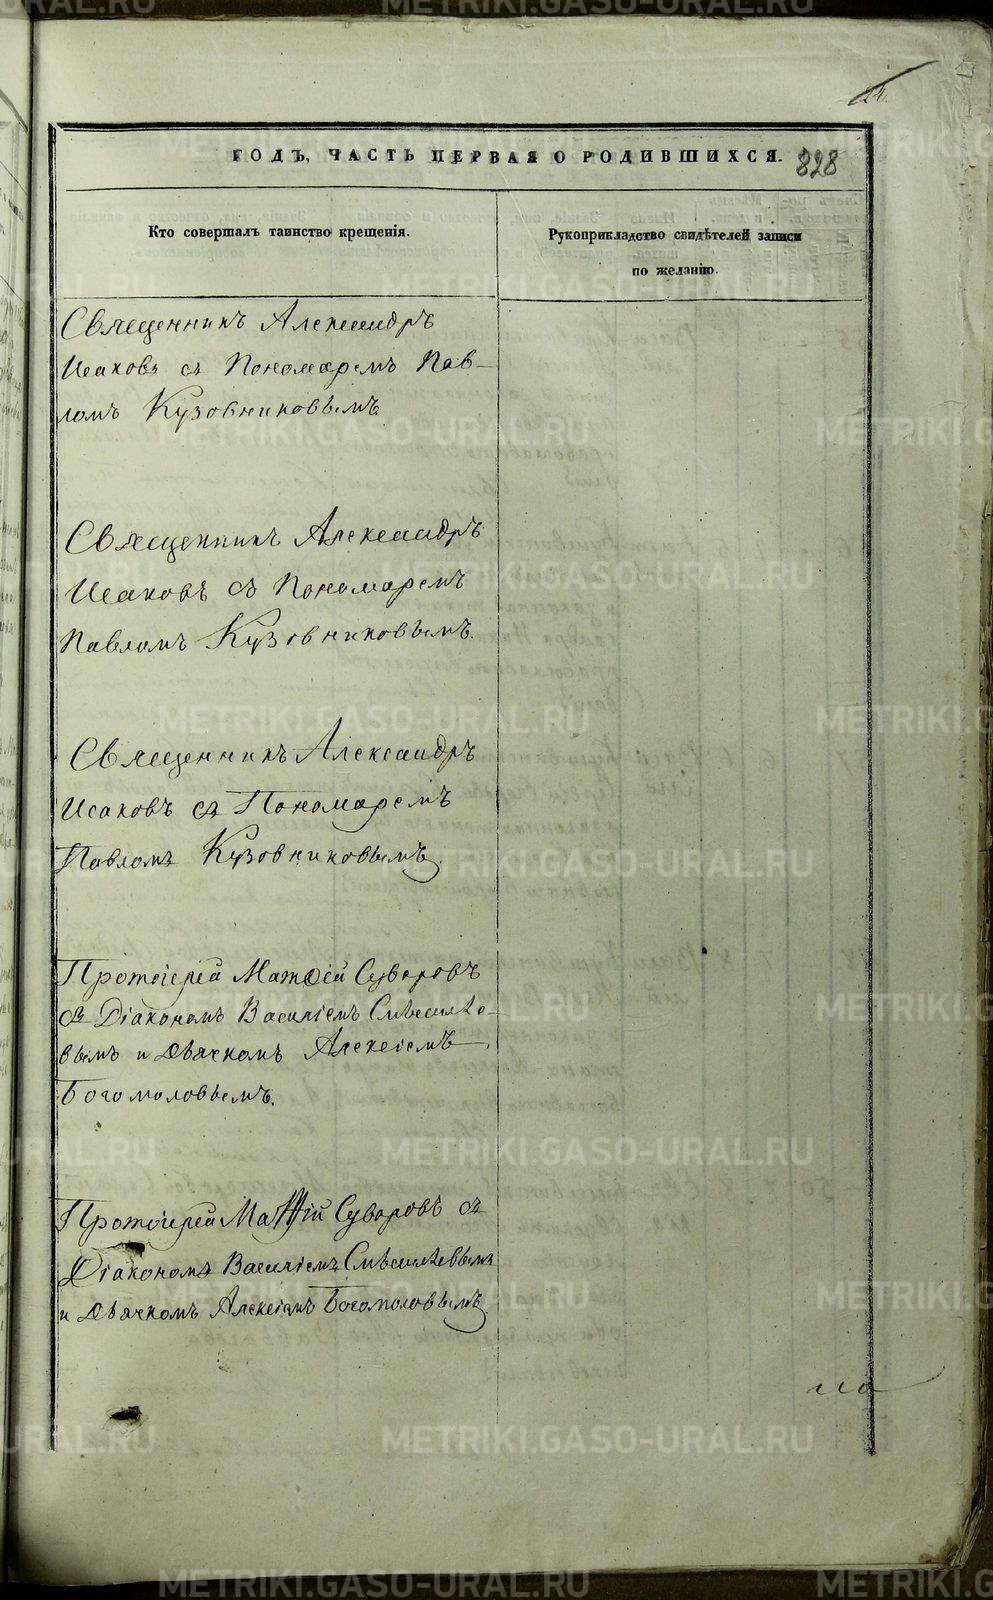 24.
ГОДЪ, ЧАСТЬ ПЕРВАЯ О РОДИВШИХСЯ. 828
Кто совершалъ таинство крещенія.
Рукоприкладство свидѣтелей записи
по желанію.
Священникъ Александръ
Исаковъ съ Пономаремъ Пав-
ломъ Кузовниковымъ
Священникъ Александръ
Исаковъ съ Пономаремъ
Павломъ Кузовниковымъ.
Священникъ Александръ
Исаковъ съ Пономаремъ
Павломъ Кузовниковымъ.
Протоіерей Матѳей Суворовъ
съ Діакономъ Василіемъ
вымъ и Дьячкомъ Алексіемъ
Богомоловымъ.
Протоіерей Матѳій Суворовъ съ
Діакономъ Василіемъ
и Дьячкомъ Алексіемъ Богомоловымъ
на
METRIKI.GASO-URAL.RU